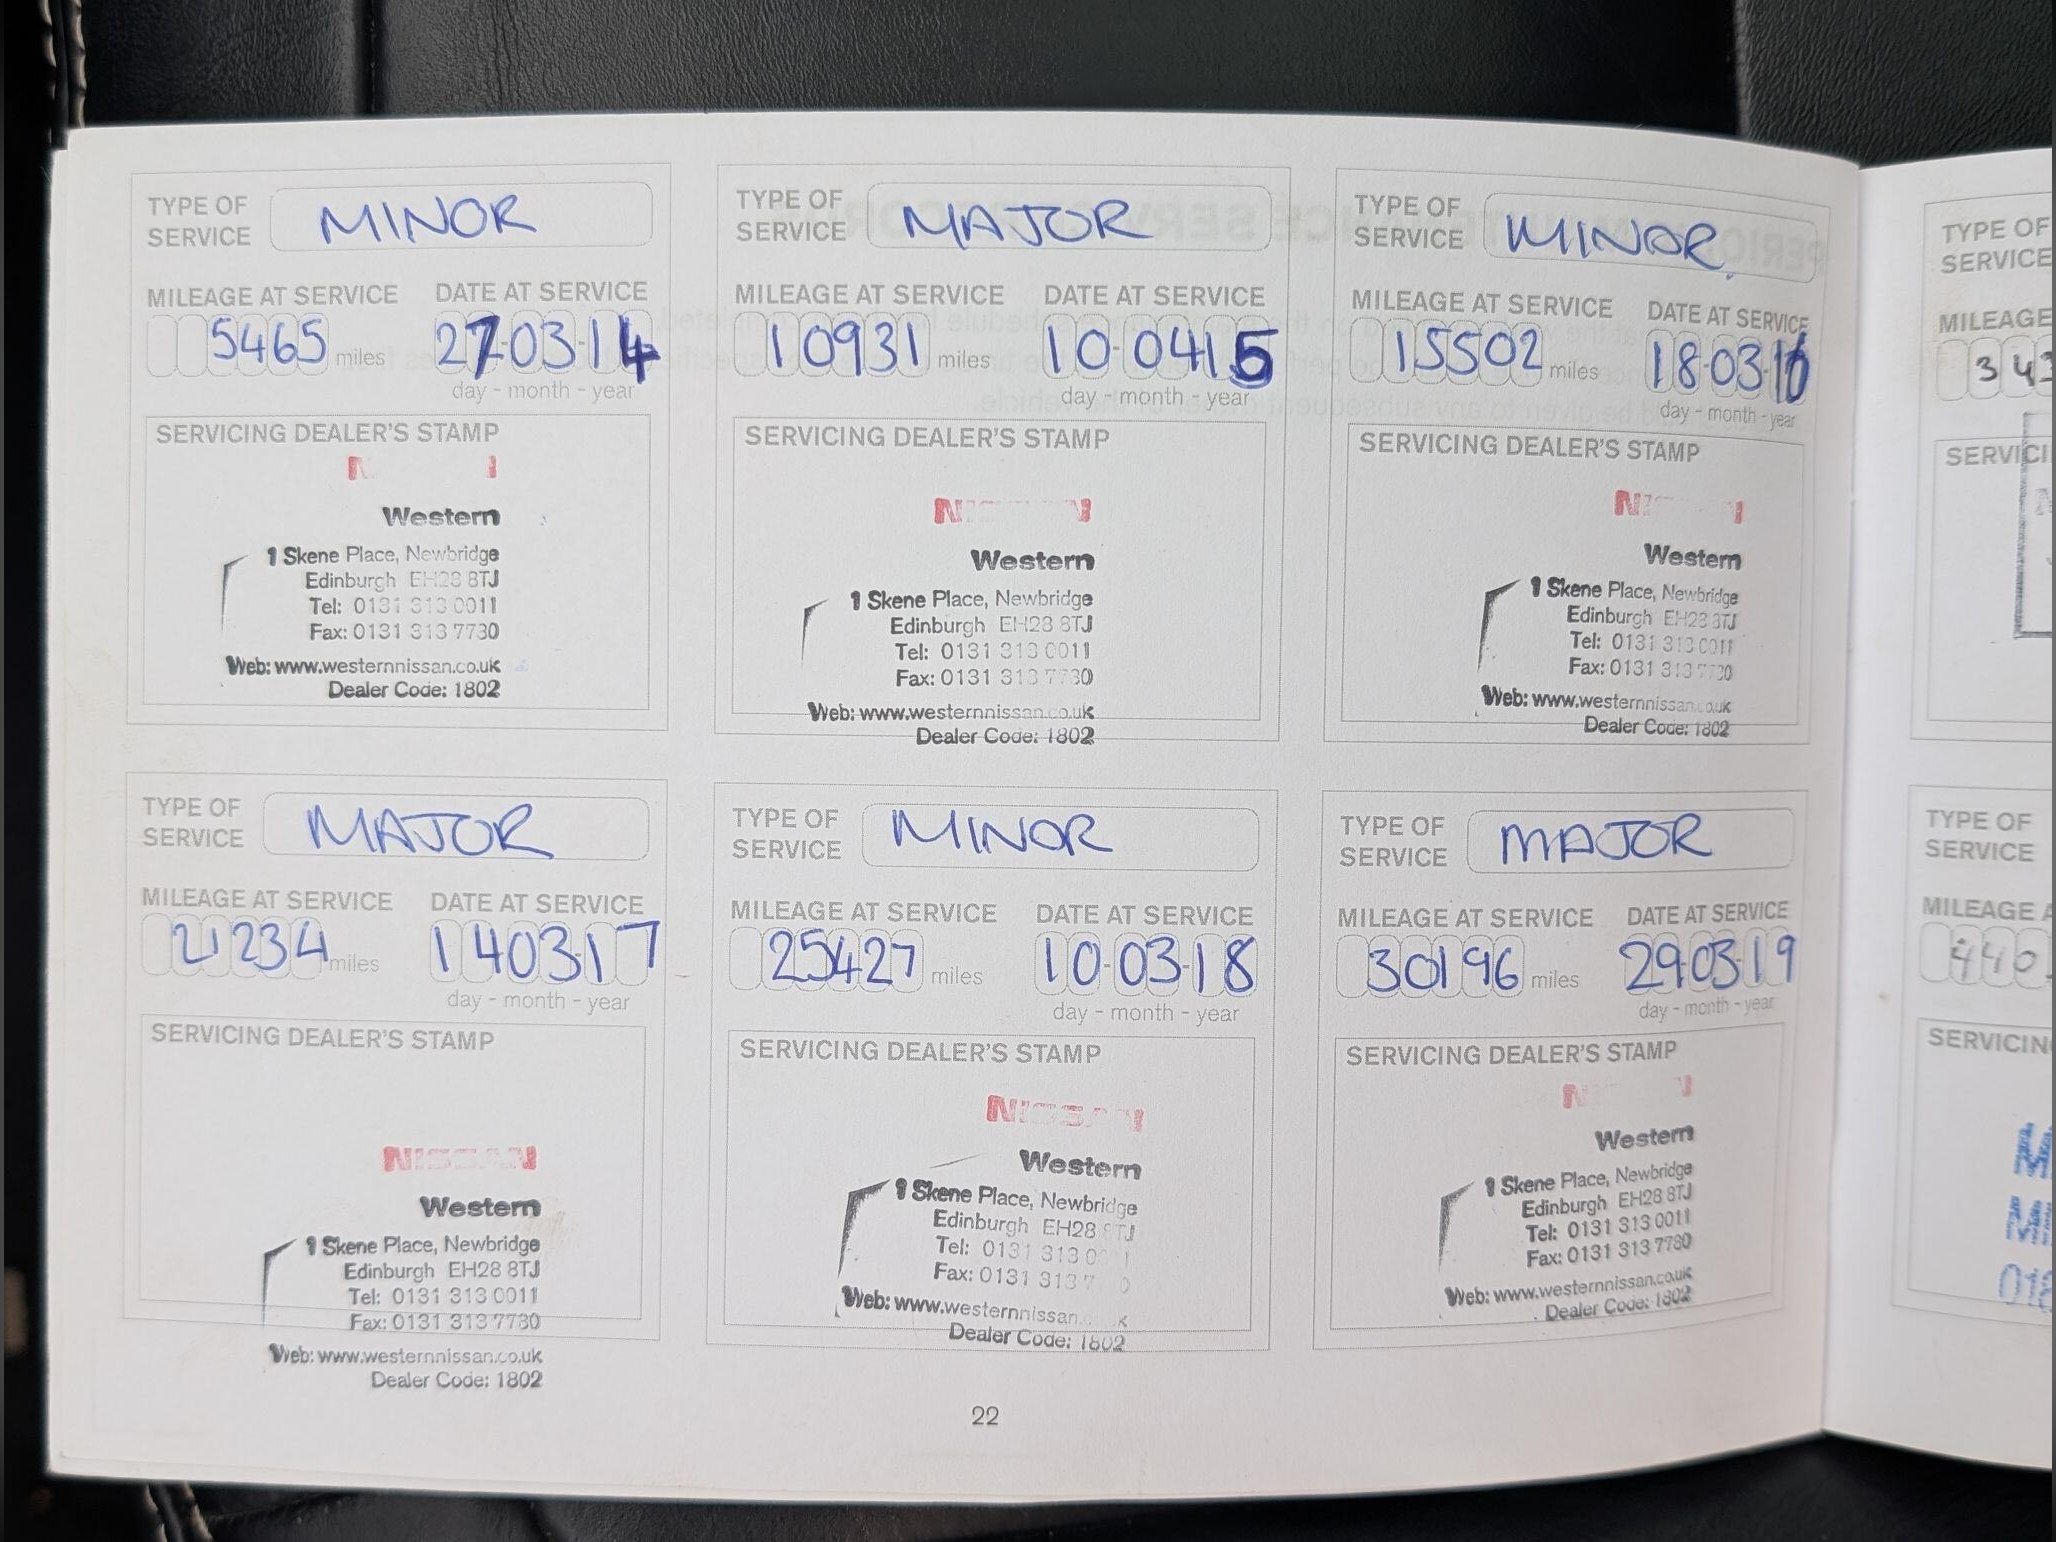 TYPE OF SERVICE MINOR
MILEAGE AT SERVICE DATE AT SERVICE
5465 miles 27-03-14
day - month - year
SERVICING DEALER'S STAMP
Western
1 Skene Place, Newbridge
Edinburgh EH28 8TJ
Tel: 0131 313 0011
Fax: 0131 313 7730
Web: www.westernnissan.co.uk
Dealer Code: 1802
TYPE OF SERVICE MAJOR
MILEAGE AT SERVICE DATE AT SERVICE
10931 miles 10-0415
day - month - year
SERVICING DEALER'S STAMP
NISSAN
Western
1 Skene Place, Newbridge
Edinburgh EH28 8TJ
Tel: 0131 313 0011
Fax: 0131 313 7730
Web: www.westernnissan.co.uk
Dealer Code: 1802
TYPE OF SERVICE MINOR
MILEAGE AT SERVICE DATE AT SERVICE
15502 miles 18-03-16
day - month - year
SERVICING DEALER'S STAMP
NISSAN
Western
1 Skene Place, Newbridge
Edinburgh EH28 8TJ
Tel: 0131 313 0011
Fax: 0131 313 7730
Web: www.westernnissan.co.uk
Dealer Code: 1802
TYPE OF SERVICE MAJOR
MILEAGE AT SERVICE DATE AT SERVICE
21234 miles 1403-17
day - month - year
SERVICING DEALER'S STAMP
NISSAN
Western
1 Skene Place, Newbridge
Edinburgh EH28 8TJ
Tel: 0131 313 0011
Fax: 0131 313 7730
Web: www.westernnissan.co.uk
Dealer Code: 1802
TYPE OF SERVICE MINOR
MILEAGE AT SERVICE DATE AT SERVICE
25427 miles 10-03-18
day - month - year
SERVICING DEALER'S STAMP
NISSAN
Western
1 Skene Place, Newbridge
Edinburgh EH28 8TJ
Tel: 0131 313 0
Fax: 0131 313 7
Web: www.westernnissan.
Dealer Code: 1802
TYPE OF SERVICE MAJOR
MILEAGE AT SERVICE DATE AT SERVICE
30196 miles 29-03-19
day - month - year
SERVICING DEALER'S STAMP
Western
1 Skene Place, Newbridge
Edinburgh EH28 8TJ
Tel: 0131 313 0011
Fax: 0131 313 7730
Web: www.westernnissan.co.uk
Dealer Code: 1802
22
TYPE OF
SERVICE
MILEAGE
TYPE OF
SERVICE
MILEAGE